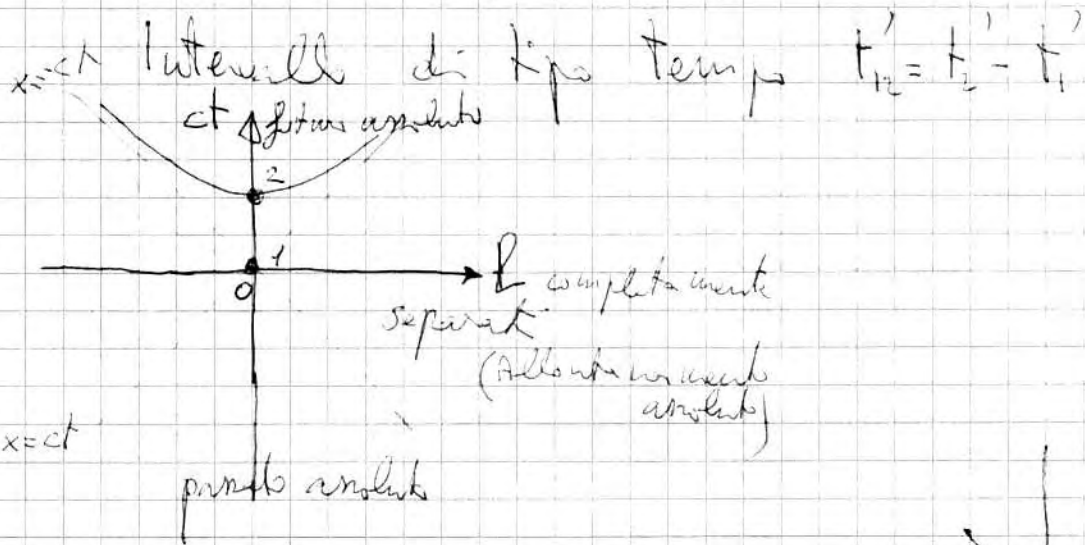 Intervallo di tipo tempo t'₁₂ = t'₂ - t'₁
x=-ct
ct futuro assoluto
2
1
0
l completamente
separati
(Allontanamento
assoluto)
x=ct
passato assoluto